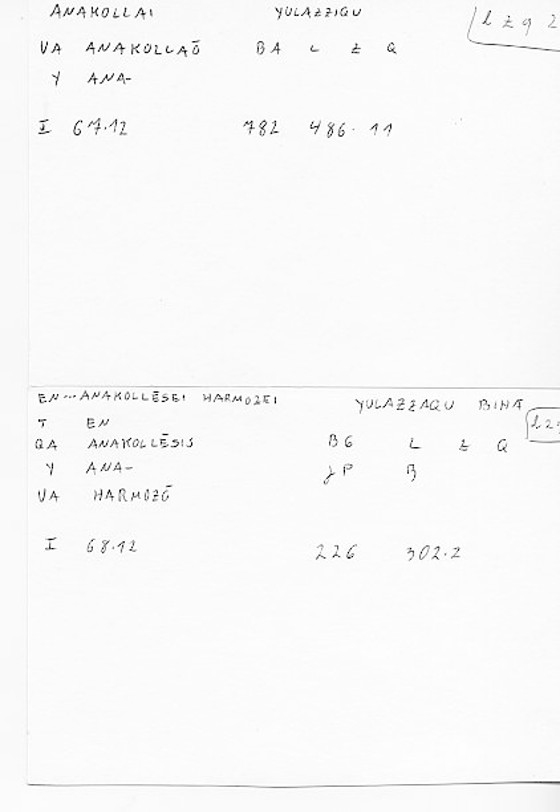 ANAKOLLAI YULAZZIQU l z q 2
VA ANAKOLLAŌ BA L Z Q
Y ANA-
I 67.12 782 486.11
EN...ANAKOLLĒSEI HARMOZEI YULAZZAQU BIHĀ l z q
T EN
QA ANAKOLLĒSIS BG L Z Q
Y ANA- JP B
VA HARMOZŌ
I 68.12 226 302.2